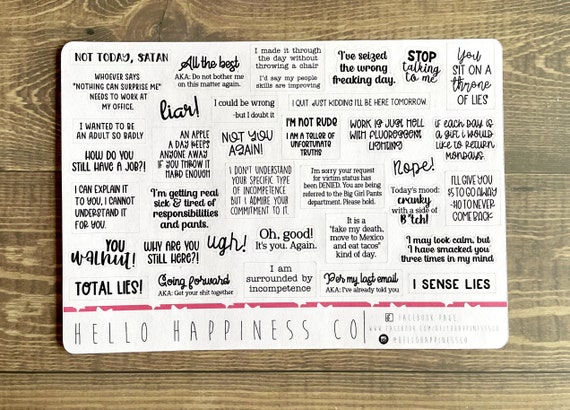 NOT TODAY, SATAN
All the best
AKA: Do not bother me
on this matter again.
I made it through
the day without
throwing a chair
I'd say my people
skills are improving
I've seized
the wrong
freaking day.
STOP
talking
to me
You
SIT ON A
throne
OF LIES
WHOEVER SAYS
"NOTHING CAN SURPRISE ME"
NEEDS TO WORK AT
MY OFFICE.
liar!
I could be wrong
-but I doubt it
I QUIT. JUST KIDDING I'LL BE HERE TOMORROW.
I WANTED TO BE
AN ADULT SO BADLY
AN APPLE
A DAY KEEPS
ANYONE AWAY
IF YOU THROW IT
HARD ENOUGH
NOT YOU
AGAIN!
I'M NOT RUDE
I AM A TELLER OF
UNFORTUNATE
TRUTHS
WORK IS JUST HELL
WITH FLUORESCENT
LIGHTING
IF EACH DAY IS
A GIFT I WOULD
LIKE TO RETURN
MONDAYS.
HOW DO YOU
STILL HAVE A JOB?!
I DON'T UNDERSTAND
YOUR SPECIFIC TYPE
OF INCOMPETENCE
BUT I ADMIRE YOUR
COMMITMENT TO IT.
I'm sorry your request
for victim status has
been DENIED. You are being
referred to the Big Girl Pants
department. Please hold.
Nope!
Today's mood:
cranky
with a side of
B*tch!
I'LL GIVE YOU
$5 TO GO AWAY
-$10 TO NEVER
COME BACK
I CAN EXPLAIN IT
TO YOU, I CANNOT
UNDERSTAND IT
FOR YOU.
I'm getting real
sick & tired of
responsibilities
and pants.
YOU
walnut!
WHY ARE YOU
STILL HERE?!
ugh!
Oh, good!
It's you. Again.
It is a
"fake my death,
move to Mexico
and eat tacos"
kind of day.
I may look calm, but
I have smacked you
three times in my mind
TOTAL LIES!
Going forward
AKA: Get your shit together
I am
surrounded by
incompetence
Per my last email
AKA: I've already told you
I SENSE LIES
HELLO HAPPINESS CO
FACEBOOK PAGE:
WWW.FACEBOOK.COM/HELLOHAPPINESSCO
@HELLOHAPPINESSCO